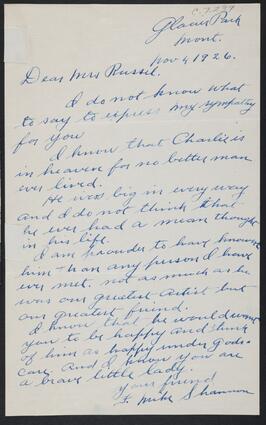 C.7.239
Glacier Park
Mont.
Nov 4 1926.
Dear Mrs Russel.
I do not know what
to say to express my sympathy
for you
I know that Charlie is
in heaven for no better man
ever lived.
He was big in every way
and I do not think that
he ever had a mean thought
in his life.
I am prouder to have known
him than any person I have
ever met, not as much as he
was our greatest artist but
our greatest friend.
I know that he would want
you to be happy and think
of him as happy under Gods
care. And I know you are
a brave little lady.
Your friend
F. Mike Shannon